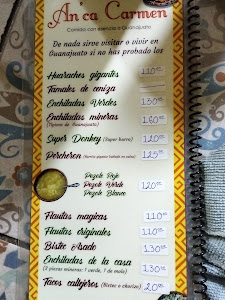 An'ca Carmen
Comida con esencia a Guanajuato
De nada sirve visitar o vivir en
Guanajuato si no has probado las
Huaraches gigantes 110.00
Tamales de ceniza
Enchiladas Verdes 130.00
Enchiladas mineras 160.00
(Típicas de Guanajuato)
Super Donkey (Super burro) 120.00
Percheron 125.00
Pozole Rojo
Pozole Verde 120.00
Pozole Blanco
Flautas magicas 110.00
Flautas originales 110.00
Bistec Asado 130.00
Enchiladas de la casa 130.00
(3 piezas mineras: 1 verde, 1 de mole)
Tacos callejeros (Bistec o chorizo) 20.00